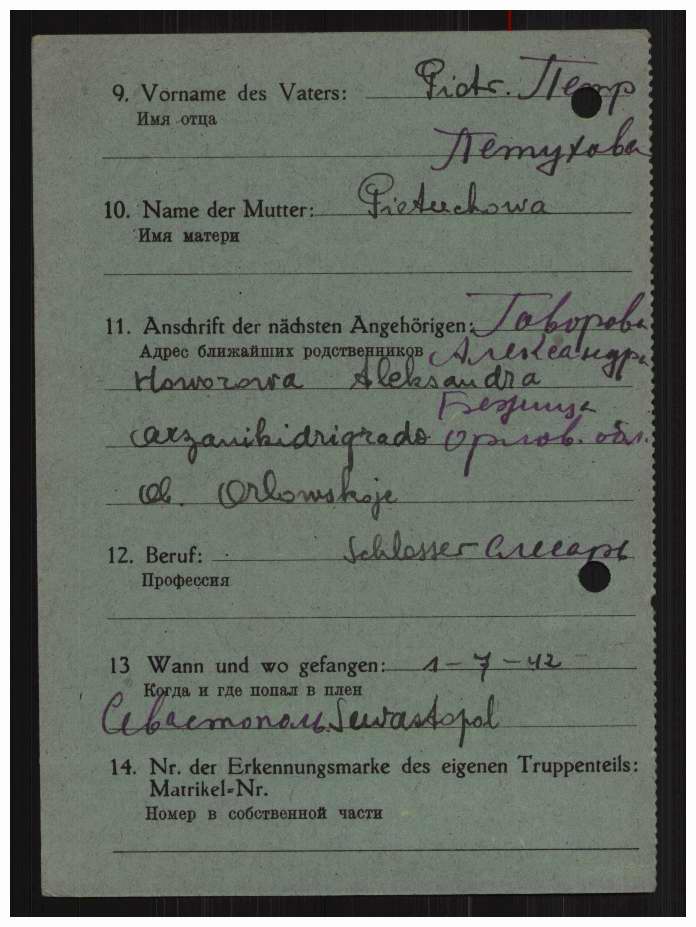 9. Vorname des Vaters: Piotr. Петр
Имя отца
Петухова
10. Name der Mutter: Pietuchowa
Имя матери
11. Anschrift der nächsten Angehörigen: Говорова
Адрес ближайших родственников Александра
Howorowa Aleksandra
Бежица
Arzanikidrigrado Орлов. обл.
Ob. Orlowskoje
12. Beruf: Schlosser Слесарь
Профессия
13 Wann und wo gefangen: 1-7-42
Когда и где попал в плен
Севастополь Sewastopol
14. Nr. der Erkennungsmarke des eigenen Truppenteils:
Matrikel-Nr.
Номер в собственной части